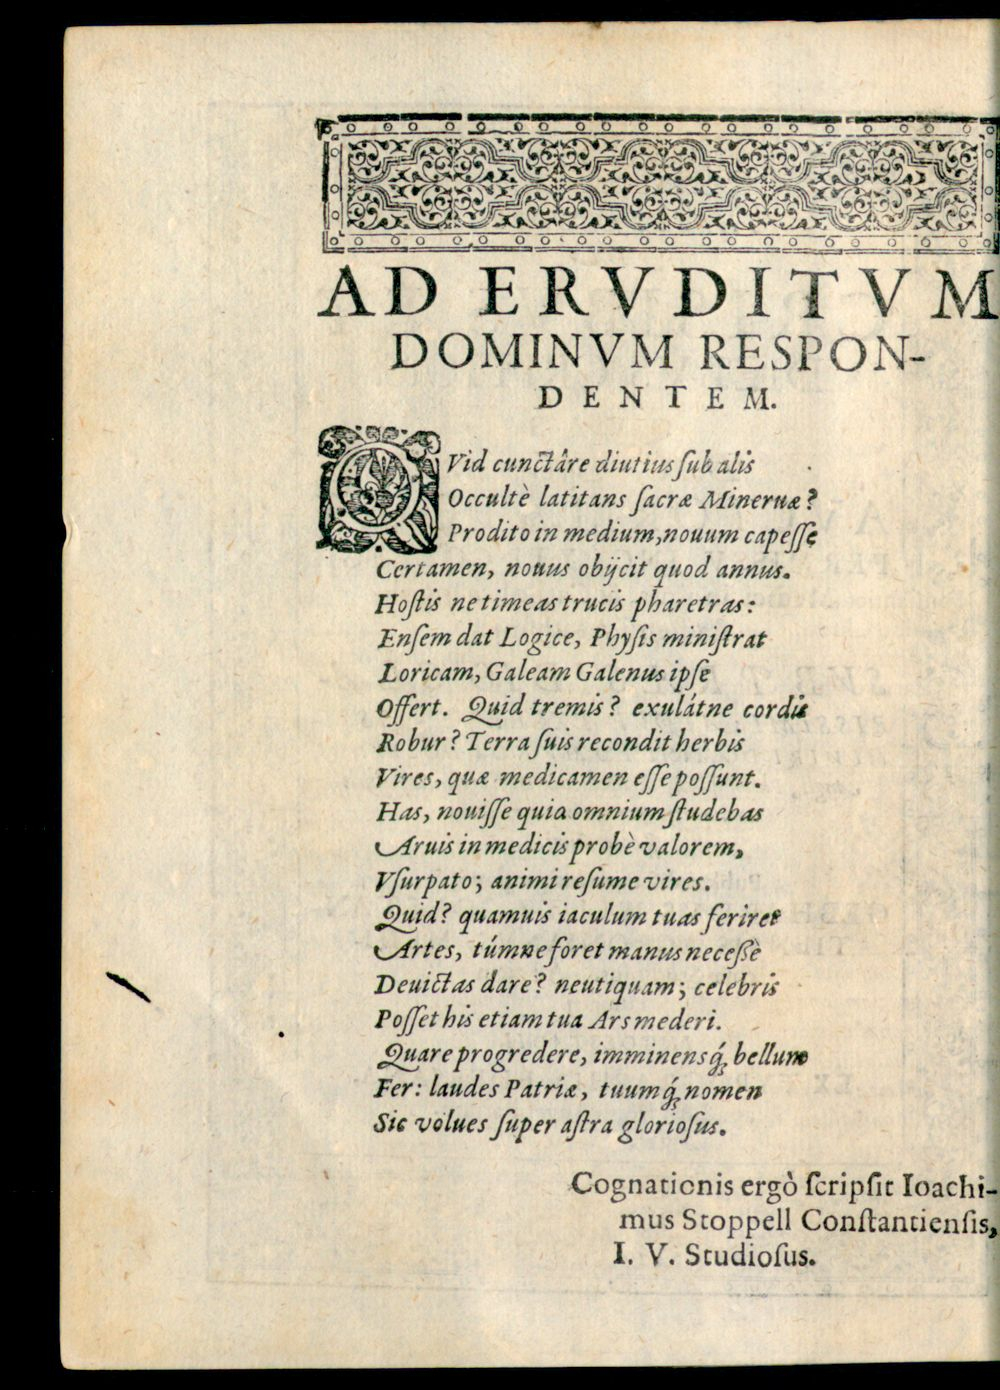 AD ERVDITVM
DOMINVM RESPON-
DENTEM.
QVid cunctâre diutius ſub alis
Occultè latitans ſacræ Mineruæ?
Prodito in medium, nouum capeſſe
Certamen, nouus obijcit quod annus.
Hoſtis ne timeas trucis pharetras:
Enſem dat Logice, Phyſis miniſtrat
Loricam, Galeam Galenus ipſe
Offert. Quid tremis? exulátne cordis
Robur? Terra ſuis recondit herbis
Vires, quæ medicamen eſſe poſſunt.
Has, nouiſſe quia omnium ſtudebas
Aruis in medicis probè valorem,
Vſurpato; animi reſume vires.
Quid? quamuis iaculum tuas feriret
Artes, túmne foret manus neceßè
Deuictas dare? neutiquam; celebris
Poſſet his etiam tua Ars mederi.
Quare progredere, imminensq́; bellum
Fer: laudes Patriæ, tuumq́; nomen
Sic volues ſuper aſtra glorioſus.
Cognationis ergò ſcripſit Ioachi-
mus Stoppell Conſtantienſis,
I. V. Studioſus.